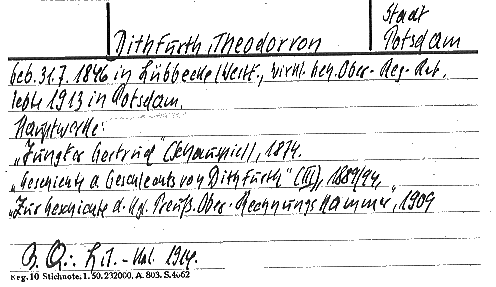 Stadt
Dithfurth, Theodor von Potsdam
geb. 31.7. 1846 in Lübbecke/Westf., wirkl. geh. Ober-Reg-Rat,
lebte 1913 in Potsdam.
Hauptwerke:
„Jungfer Gertrud" (Schauspiel), 1874.
„Geschichte d. Geschlechts von Dithfurth" (III), 1889/94,
„Zur Geschichte d. Kgl. Preuß. Ober-Rechnungskammer", 1909
B. Q.: Lit.-Kal. 1914.
Reg. 10 Stichnote. 1. 50. 232000, A. 803. S. 4662